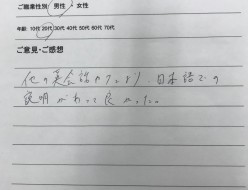 ご職業性別 男性 ・ 女性
年齢: 10代 20代 30代 40代 50代 60代 70代
ご意見・ご感想
他の英会話カフェより、日本語での
説明があって良かった。